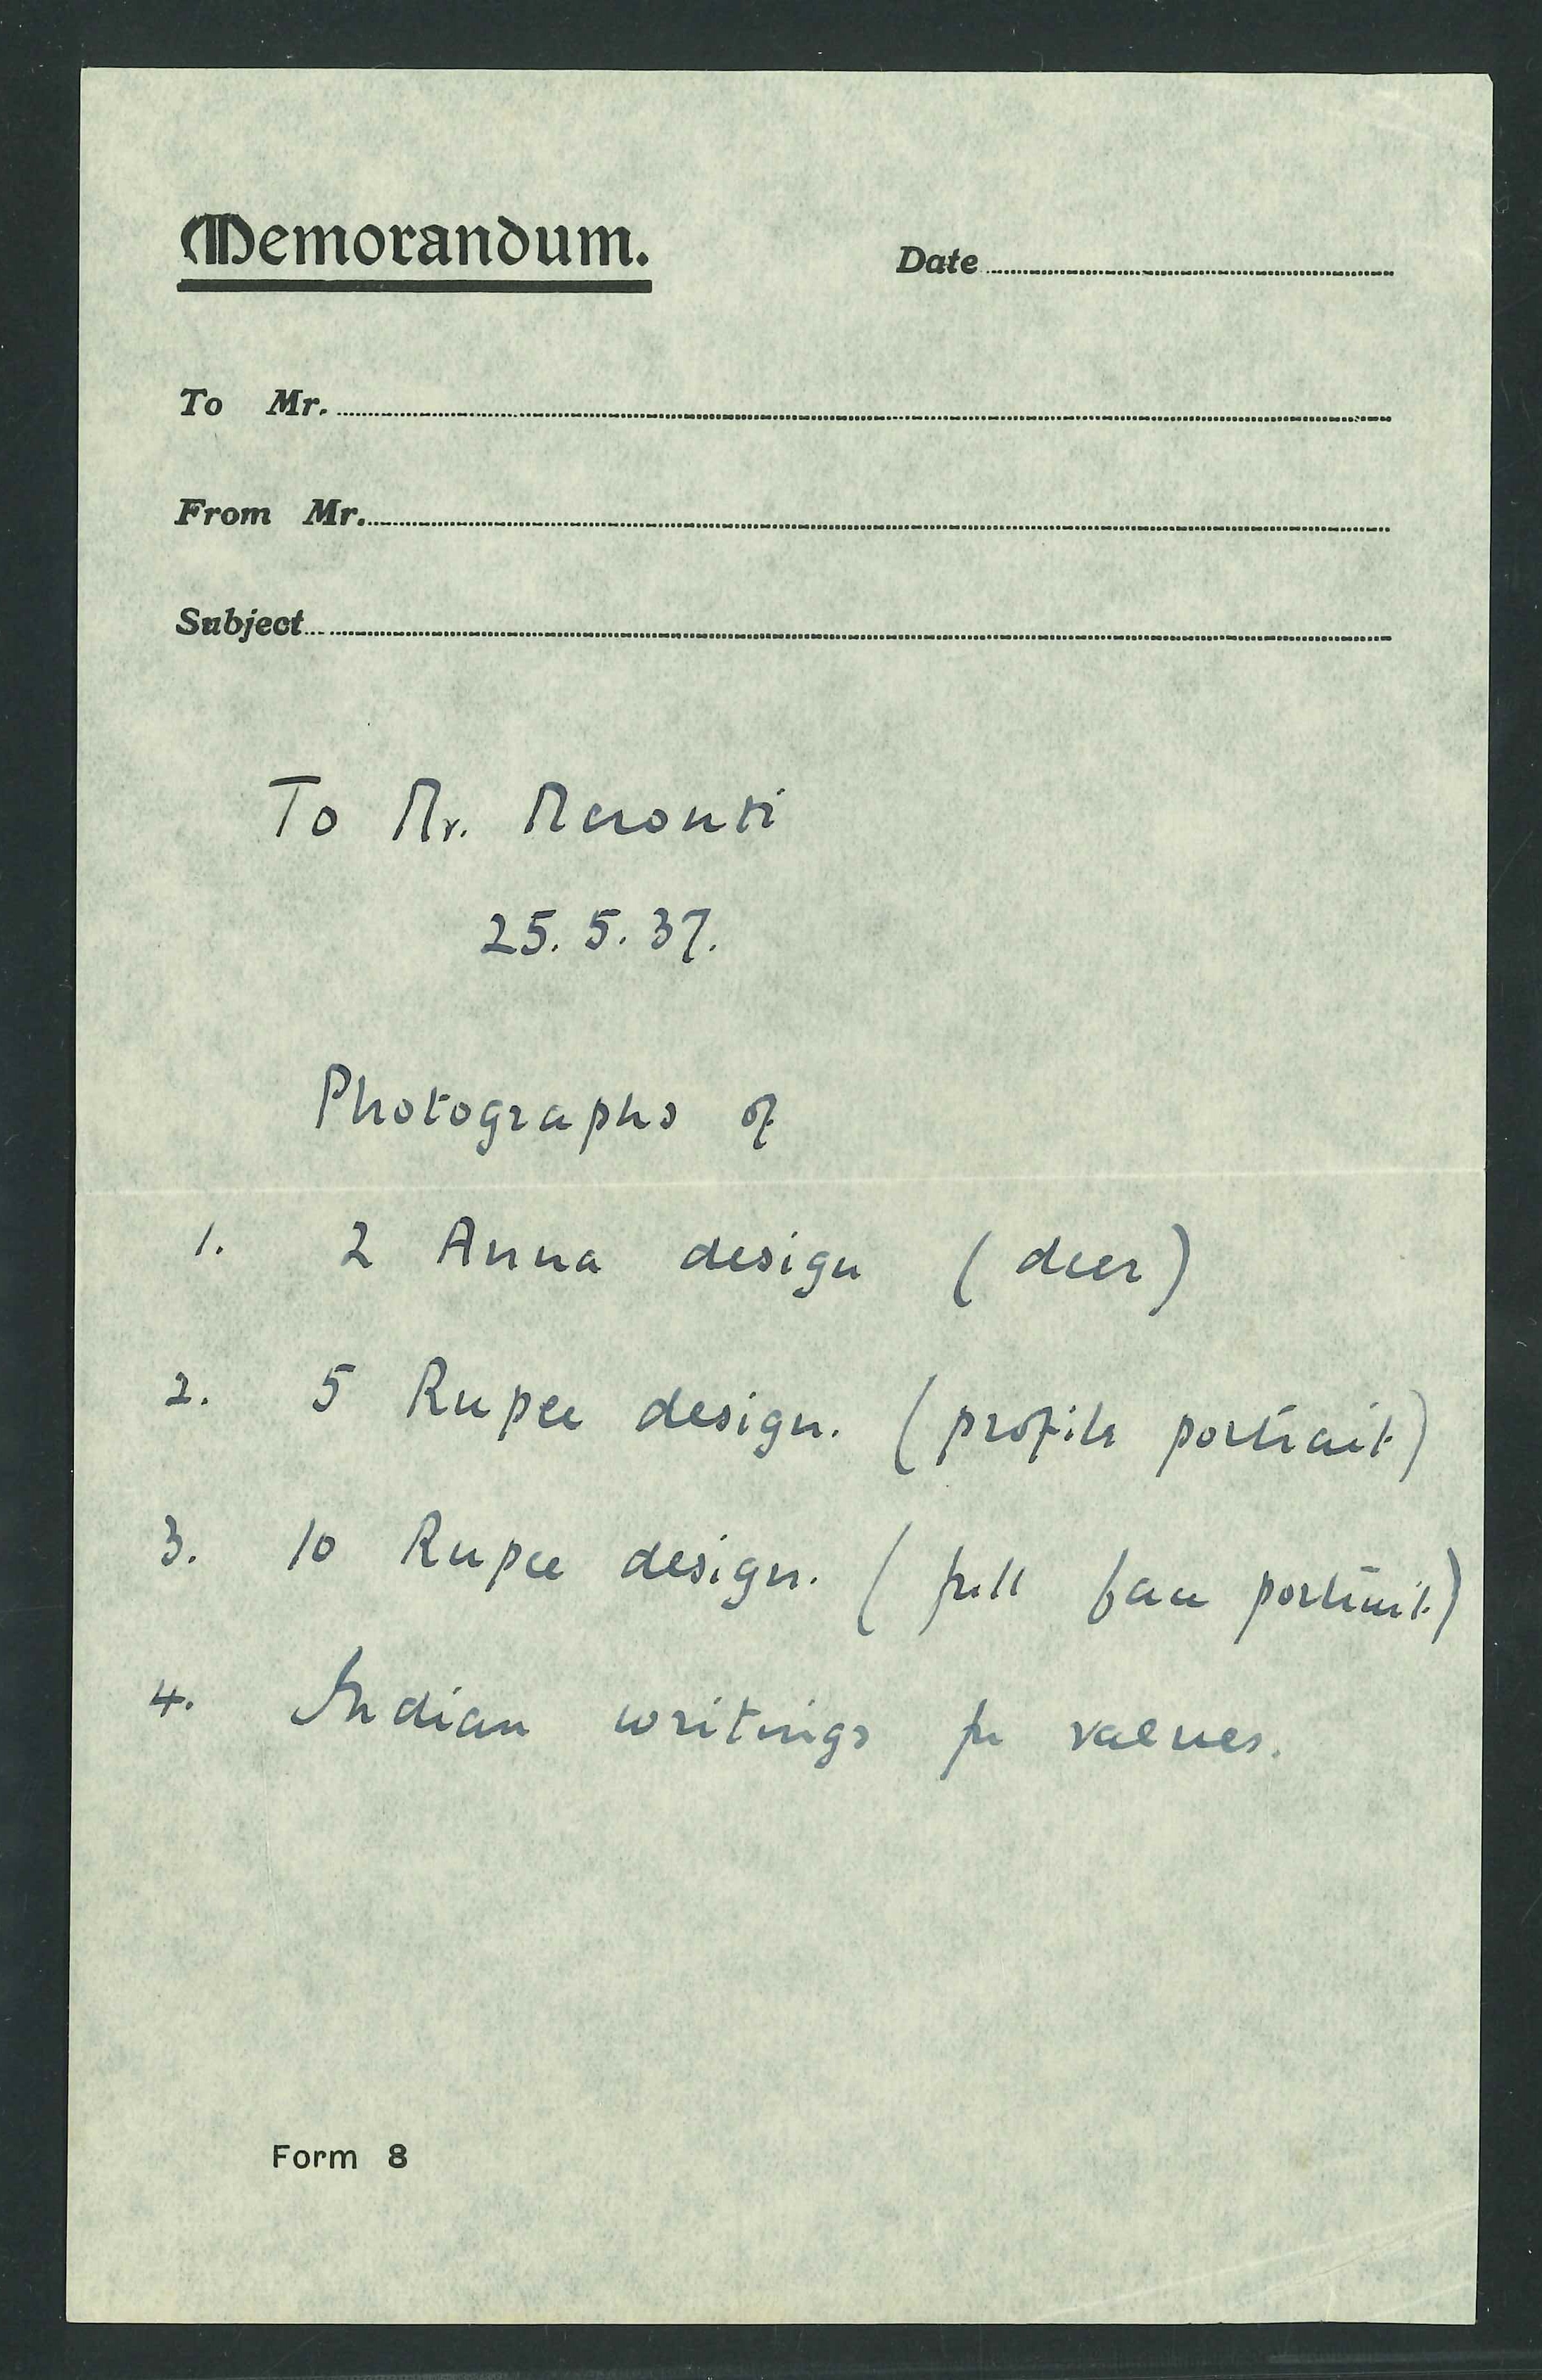 Memorandum.
Date
To Mr.
From Mr.
Subject
To Mr. Meronti
25. 5. 37.
Photographs of
1. 2 Anna design (deer)
2. 5 Rupee design. (profile portrait)
3. 10 Rupee design. (full face portrait)
4. Indian writings for values.
Form 8